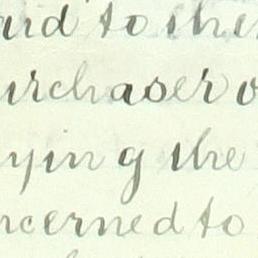 aid to the
urchaser o
ying the
ncerned to